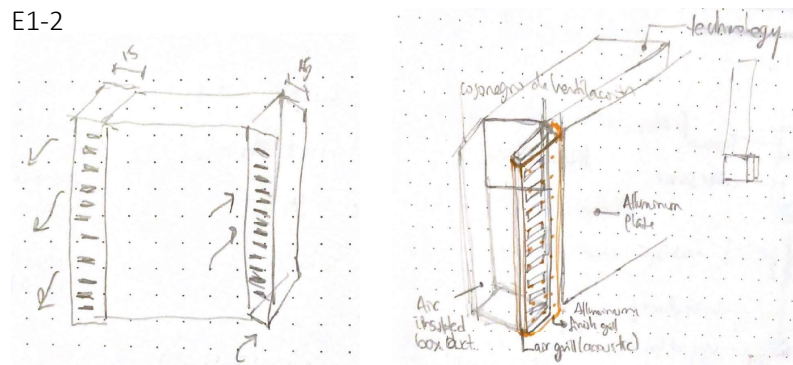 E1-2
15
15
technology
cosonegro de ventilacion
Alluminum
plate
Air
insulated
box duct.
Alluminum
finish grill
air grill (acoustic)